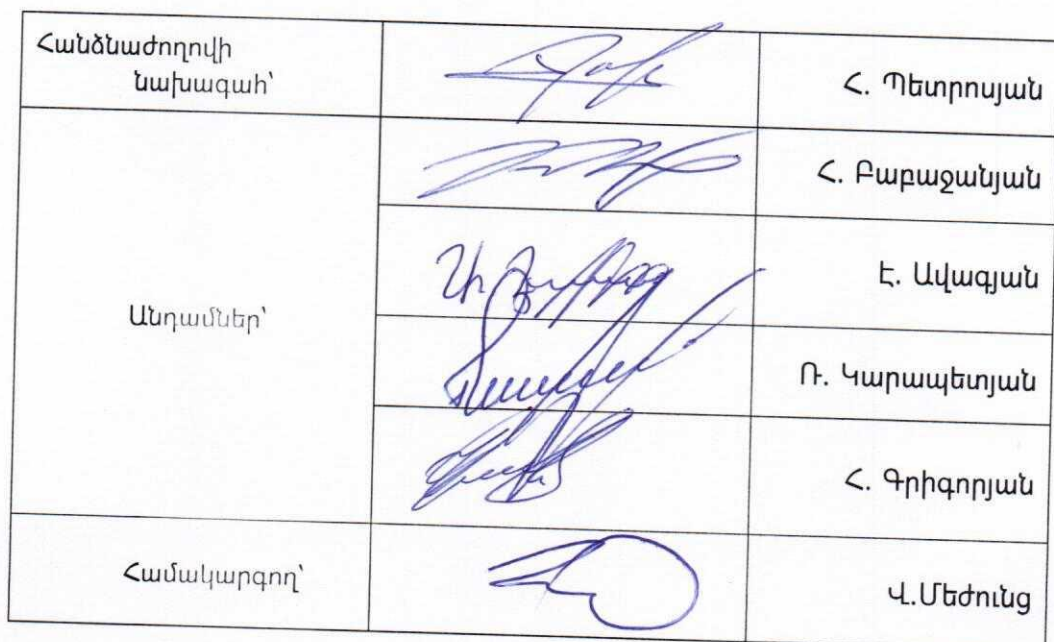 Հանձնաժողովի
նախագահ՝
Հ. Պետրոսյան
Հ. Բաբաջանյան
Անդամներ՝
Է. Ավագյան
Ռ. Կարապետյան
Հ. Գրիգորյան
Համակարգող՝
Վ.Մեժունց